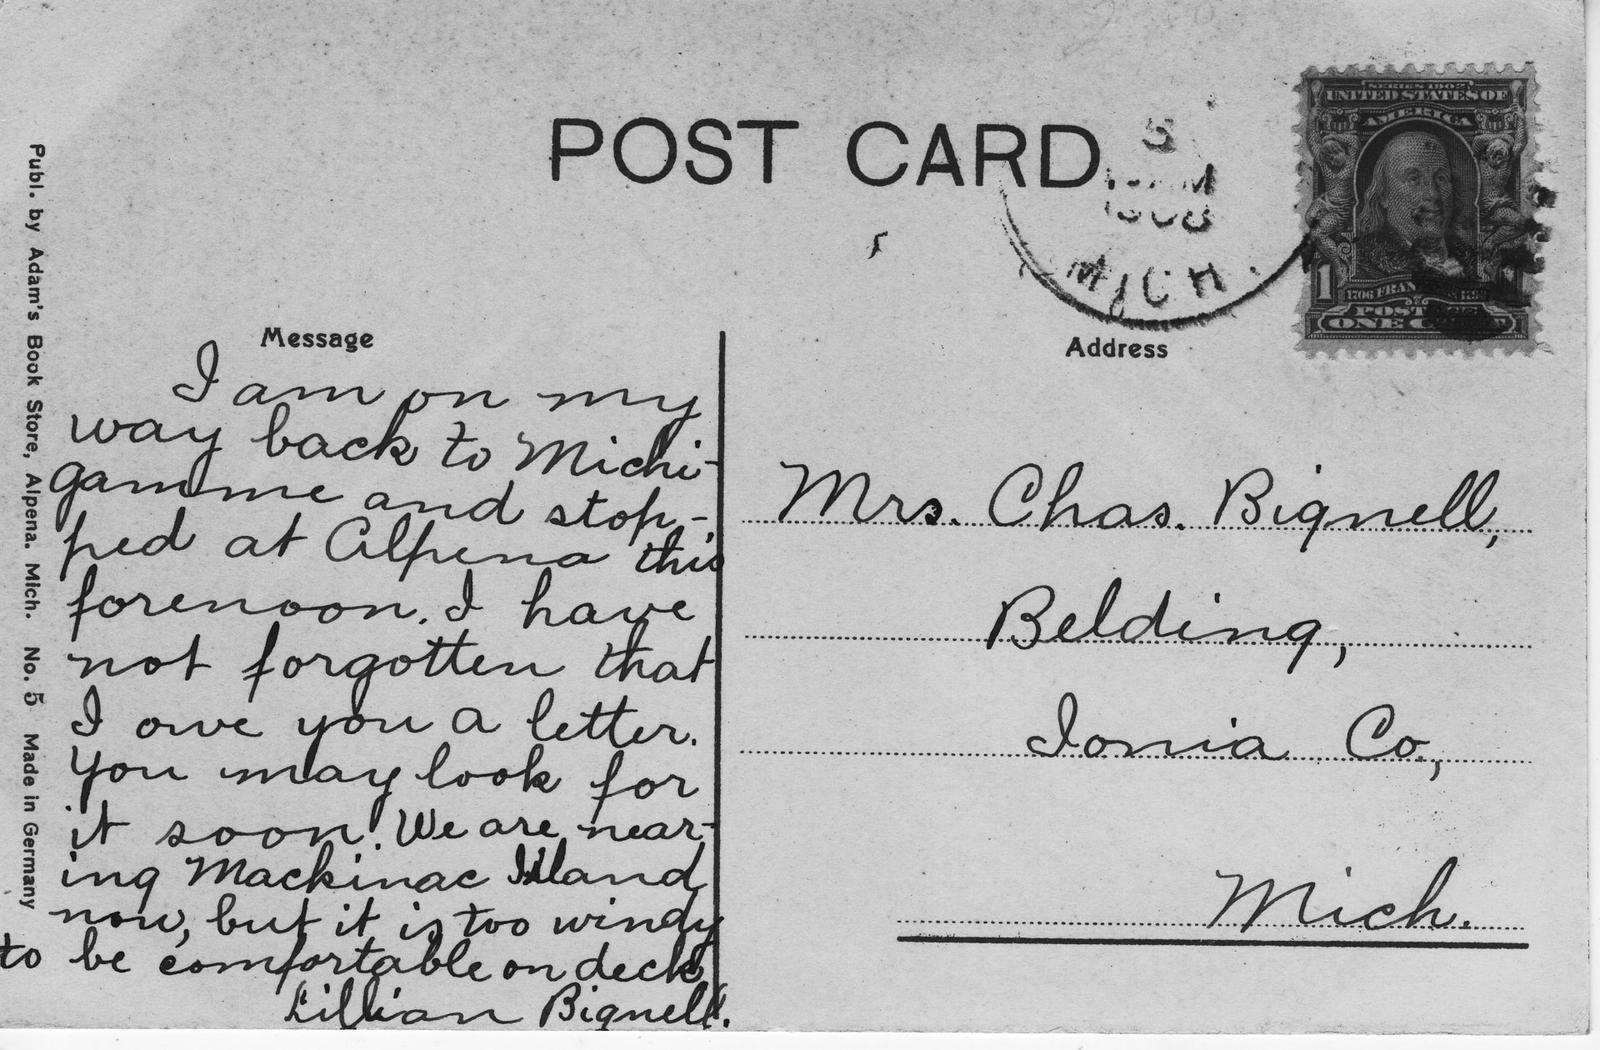 POST CARD.
5
1908
MICH.
SERIES 1902
UNITED STATES OF
AMERICA
1
1706 FRANKLIN
POSTAGE
ONE CENT
Publ. by Adam's Book Store, Alpena. Mich. No. 5 Made in Germany
Message
I am on my
way back to Michi-
gamme and stop-
ped at Alpena this
forenoon. I have
not forgotten that
I owe you a letter.
You may look for
it soon. We are near-
ing Mackinac Island
now, but it is too windy
to be comfortable on deck
Lillian Bignell.
Address
Mrs. Chas. Bignell,
Belding,
Ionia Co.,
Mich.